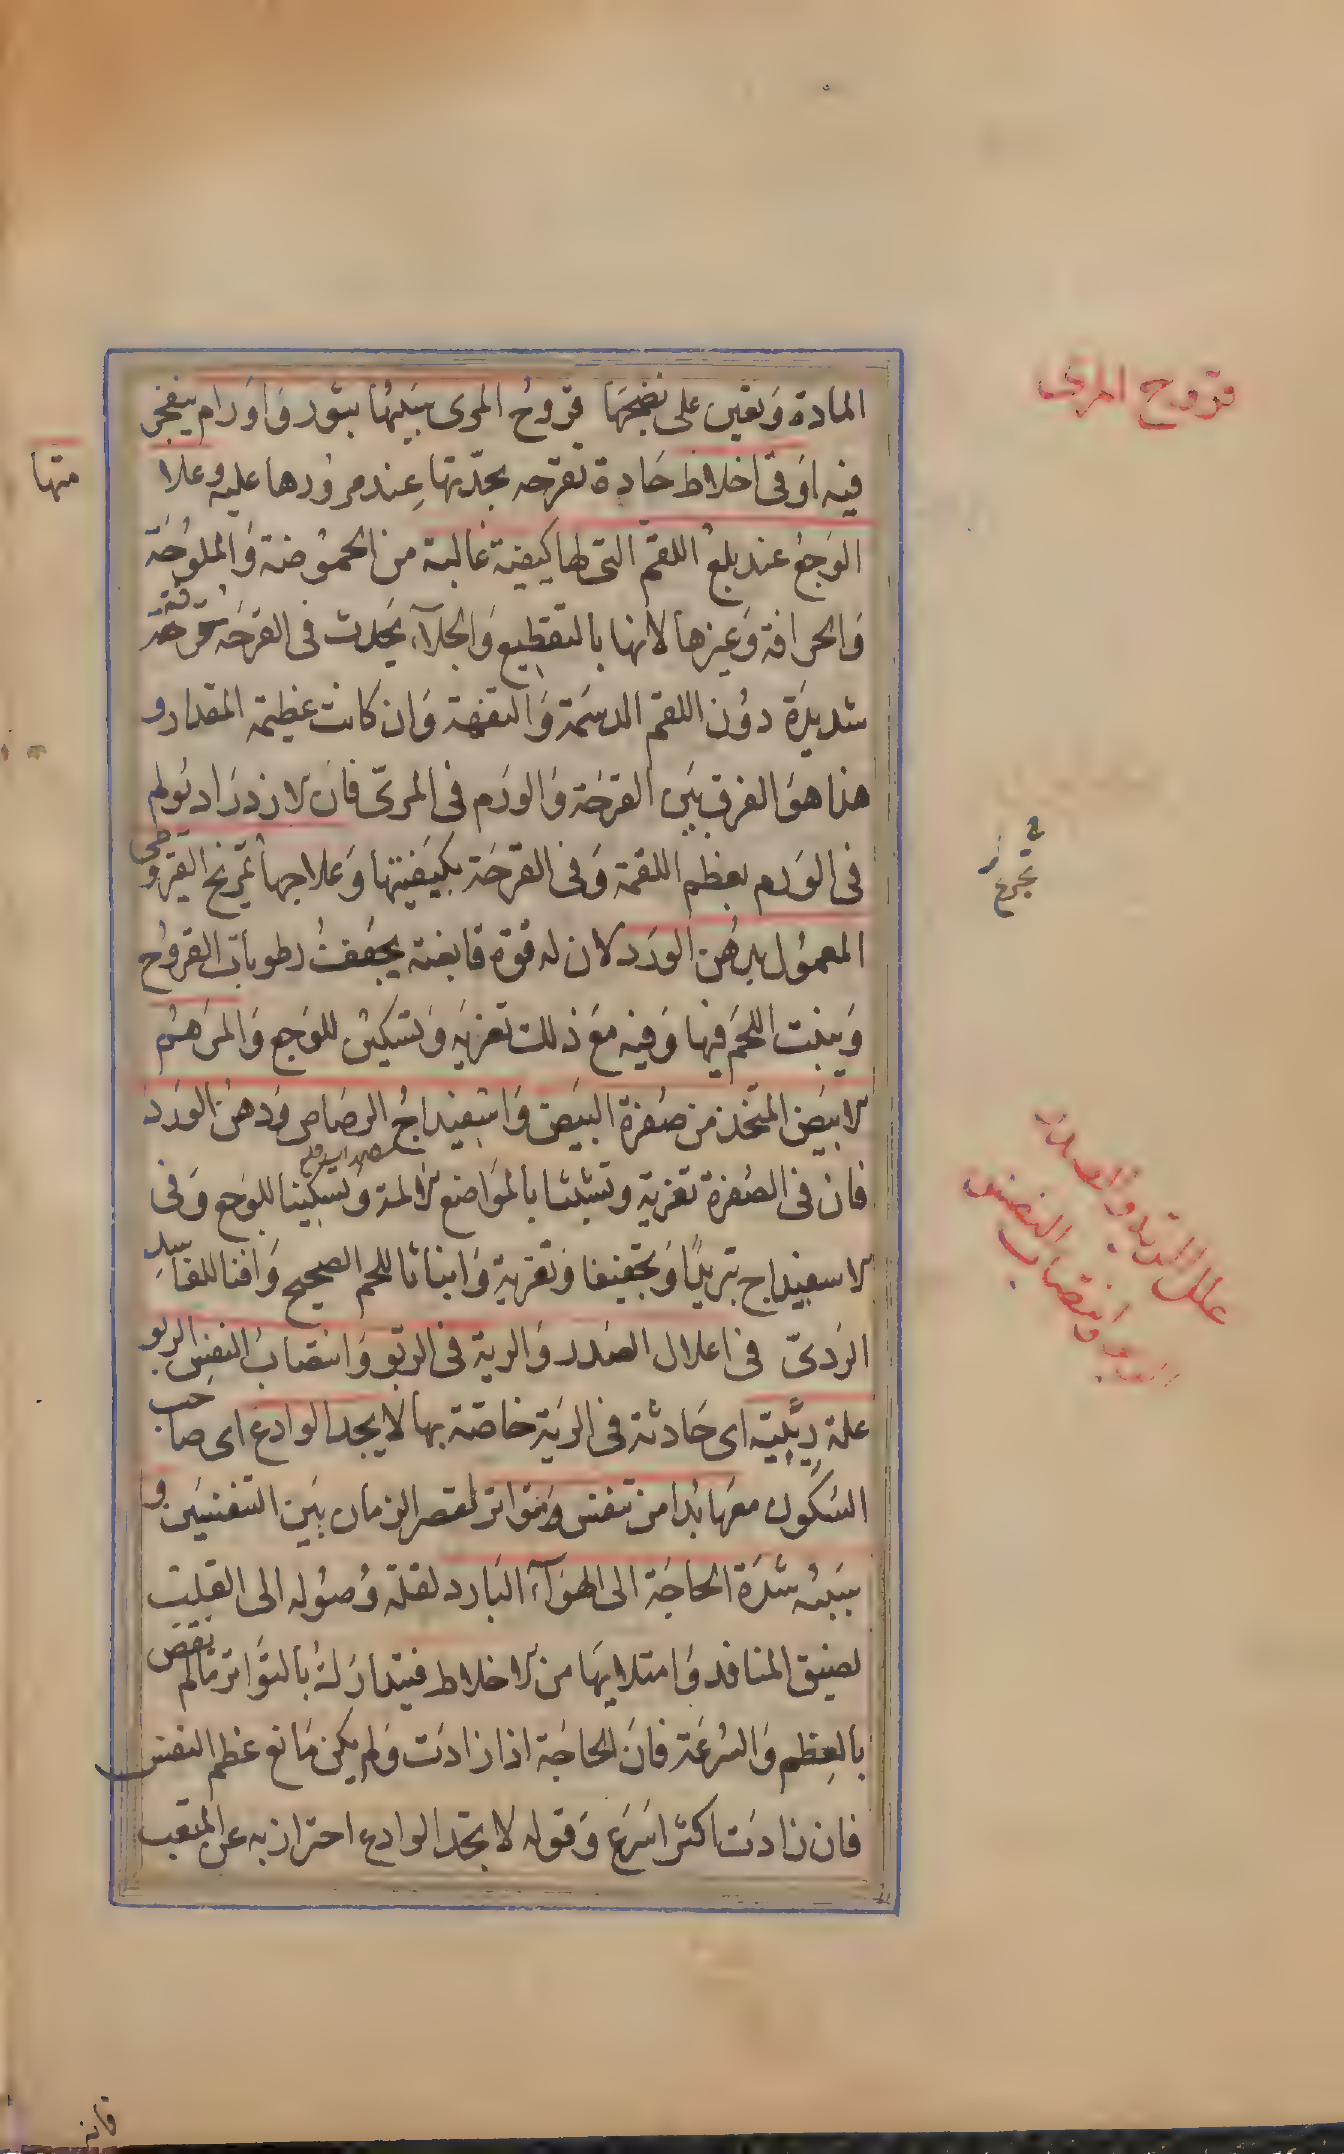 قروح المرى
المادة وتعين على نضجها قروح المرى سببها بثور واورام ينفجر
فيه او فى اخلاط حادة تقرحه بحدتها عند مرورها عليه وعلا
متها
الوجع عند بلع اللقم التى لها كيفية غالبة من الحموضة والملوحة
والحرافة وغيرها لانها بالتقطيع والجلاء يحدث فى القرحة حرقة
شديدة دون اللقم الدسمة والتفهة وان كانت عظيمة المقدار و
هذا هو الفرق بين القرحة والورم فى المرى فان الازدراد يولم
فى الورم بعظم اللقمة وفى القرحة بكيفيتها وعلاجها تمريخ القيروطى
تجرع
المعمول بدهن الورد لان له قوة قابضة يجفف رطوبات القروح
وينبت اللحم فيها وفيه مع ذلك تغرية وتسكين للوجع والمرهم
الابيض المتخذ من صفرة البيض واسفيداج الرصاص ودهن الورد
فان فى الصفرة تغرية وتشبثا بالمواضع الالمة وتسكينا للوجع وفى
الاسفيداج تبريدا وتجفيفا وتغرية وانباتا للحم الصحيح وافناء للفاسد
علل الرية والصدر
الربو وانتصاب النفس
الردى فى اعلال الصدر والرية فى الربو وانتصاب النفس الربو
علة رييية اى حادثة فى الرية خاصة بها لا يجد الوادع اى صاحب
السكون معها بدا من تنفس متواتر لقصر الزمان بين التنفسين و
سببه شدة الحاجة الى الهواء البارد لقلة وصوله الى القلب
لضيق المنافذ وامتلايها من الاخلاط فيتدارك بالتواتر مالم يقض
بالعظم والسرعة فان الحاجة اذا زادت ولم يكن مانع عظم النفس
فان زادت اكثر اسرع وقوله لا يجد الوادع احتراز به عن المتعب
فانه